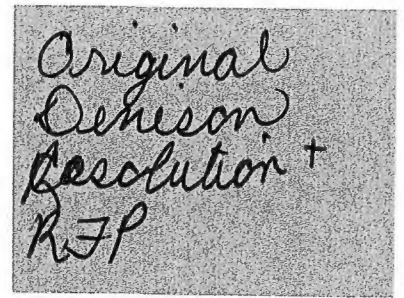 Original
Denison
Resolution +
RFP